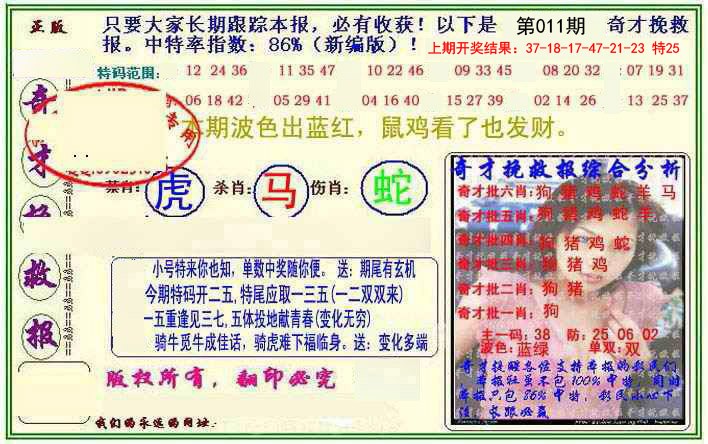 正版
只要大家长期跟踪本报，必有收获！以下是 第011期 奇才挽救
报。中特率指数：86%（新编版）！
上期开奖结果：37-18-17-47-21-23 特25
特码范围： 12 24 36 11 35 47 10 22 46 09 33 45 08 20 32 07 19 31
06 18 42 05 29 41 04 16 40 15 27 39 02 14 26 13 25 37
专用
本期波色出蓝红，鼠鸡看了也发财。
禁肖：虎 杀肖：马 伤肖：蛇
奇
才
救
报
小号特来你也知，单数中奖随你便。 送：期尾有玄机
今期特码开二五,特尾应取一三五(一二双双来)
一五重逢见三七,五体投地献青春(变化无穷)
骑牛觅牛成佳话，骑虎难下福临身。送：变化多端
版权所有，翻印必究
我们的永远的网址：
奇才挽救报综合分析
奇才批六肖：狗 猪 鸡 蛇 羊 马
奇才批五肖：狗 猪 鸡 蛇 羊
奇才批四肖：狗 猪 鸡 蛇
奇才批三肖：狗 猪 鸡
奇才批二肖：狗 猪
奇才批一肖：狗
主一码：38 防：25 06 02
波色：蓝绿 单双：双
奇才提醒各位支持本报的彩民们
本报驻虽不包100%中特，同时
本报只包86%中特，彩民小心下
注